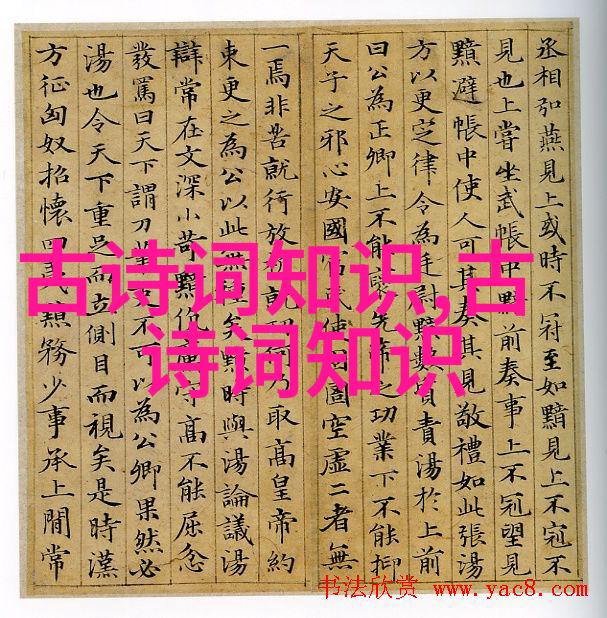 丞相弘燕見上或時不冠至如黯見上不冠不
見也上嘗坐武帳中黯前奏事上不冠望見
黯避帳中使人可其奏其見敬禮如此張湯
方以更定律令為廷尉黯數質責湯於上前
曰公為正卿上不能褒先帝之功業下不能抑
天子之邪心安國富民使囹圄空虛二者無
一焉非苦就行放就功何乃取高皇帝約
束更之為公以此無種矣黯時與湯論議湯
辯常在文深小苛黯伉厲守高不能屈忿
發罵曰天下謂刀筆吏不可以為公卿果然必
湯也令天下重足而立側目而視矣是時漢
方征匈奴招懷四夷黯務少事承上間常
古诗词知识,古
诗词知识
书法欣赏 www.yac8.com